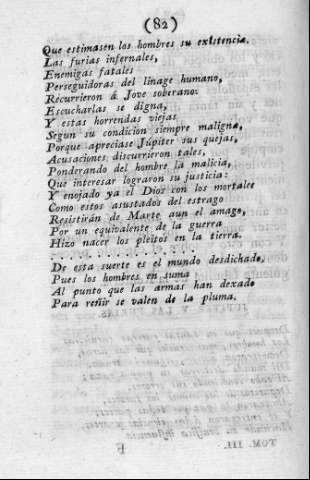 (82)
Que estimasen los hombres su existencia.
Las furias infernales,
Enemigas fatales
Perseguidoras del linage humano,
Recurrieron á Jove soberano:
Escucharlas se digna,
Y estas horrendas viejas
Segun su condicion siempre maligna,
Porque apreciase Júpiter sus quejas,
Acusaciones discurrieron tales,
Ponderando del hombre la malicia,
Que interesar lograron su justicia:
Y enojado ya el Dios con los mortales
Como estos asustados del estrago
Resistirán de Marte aun el amago,
Por un equivalente de la guerra
Hizo nacer los pleitos en la tierra.
. . . . . . . . . . . . . . . . . .
De esta suerte es el mundo desdichado,
Pues los hombres en suma
Al punto que las armas han dexado
Para reñir se valen de la pluma.
TOM. III.
F